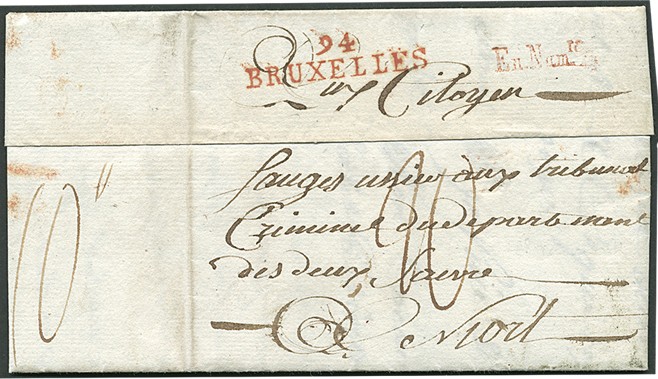 94
BRUXELLES
En Num.re
Aux Citoyen
Juges unie aux tribunal
Criminel du departement
des deux Saivre
A Niort
10"
20